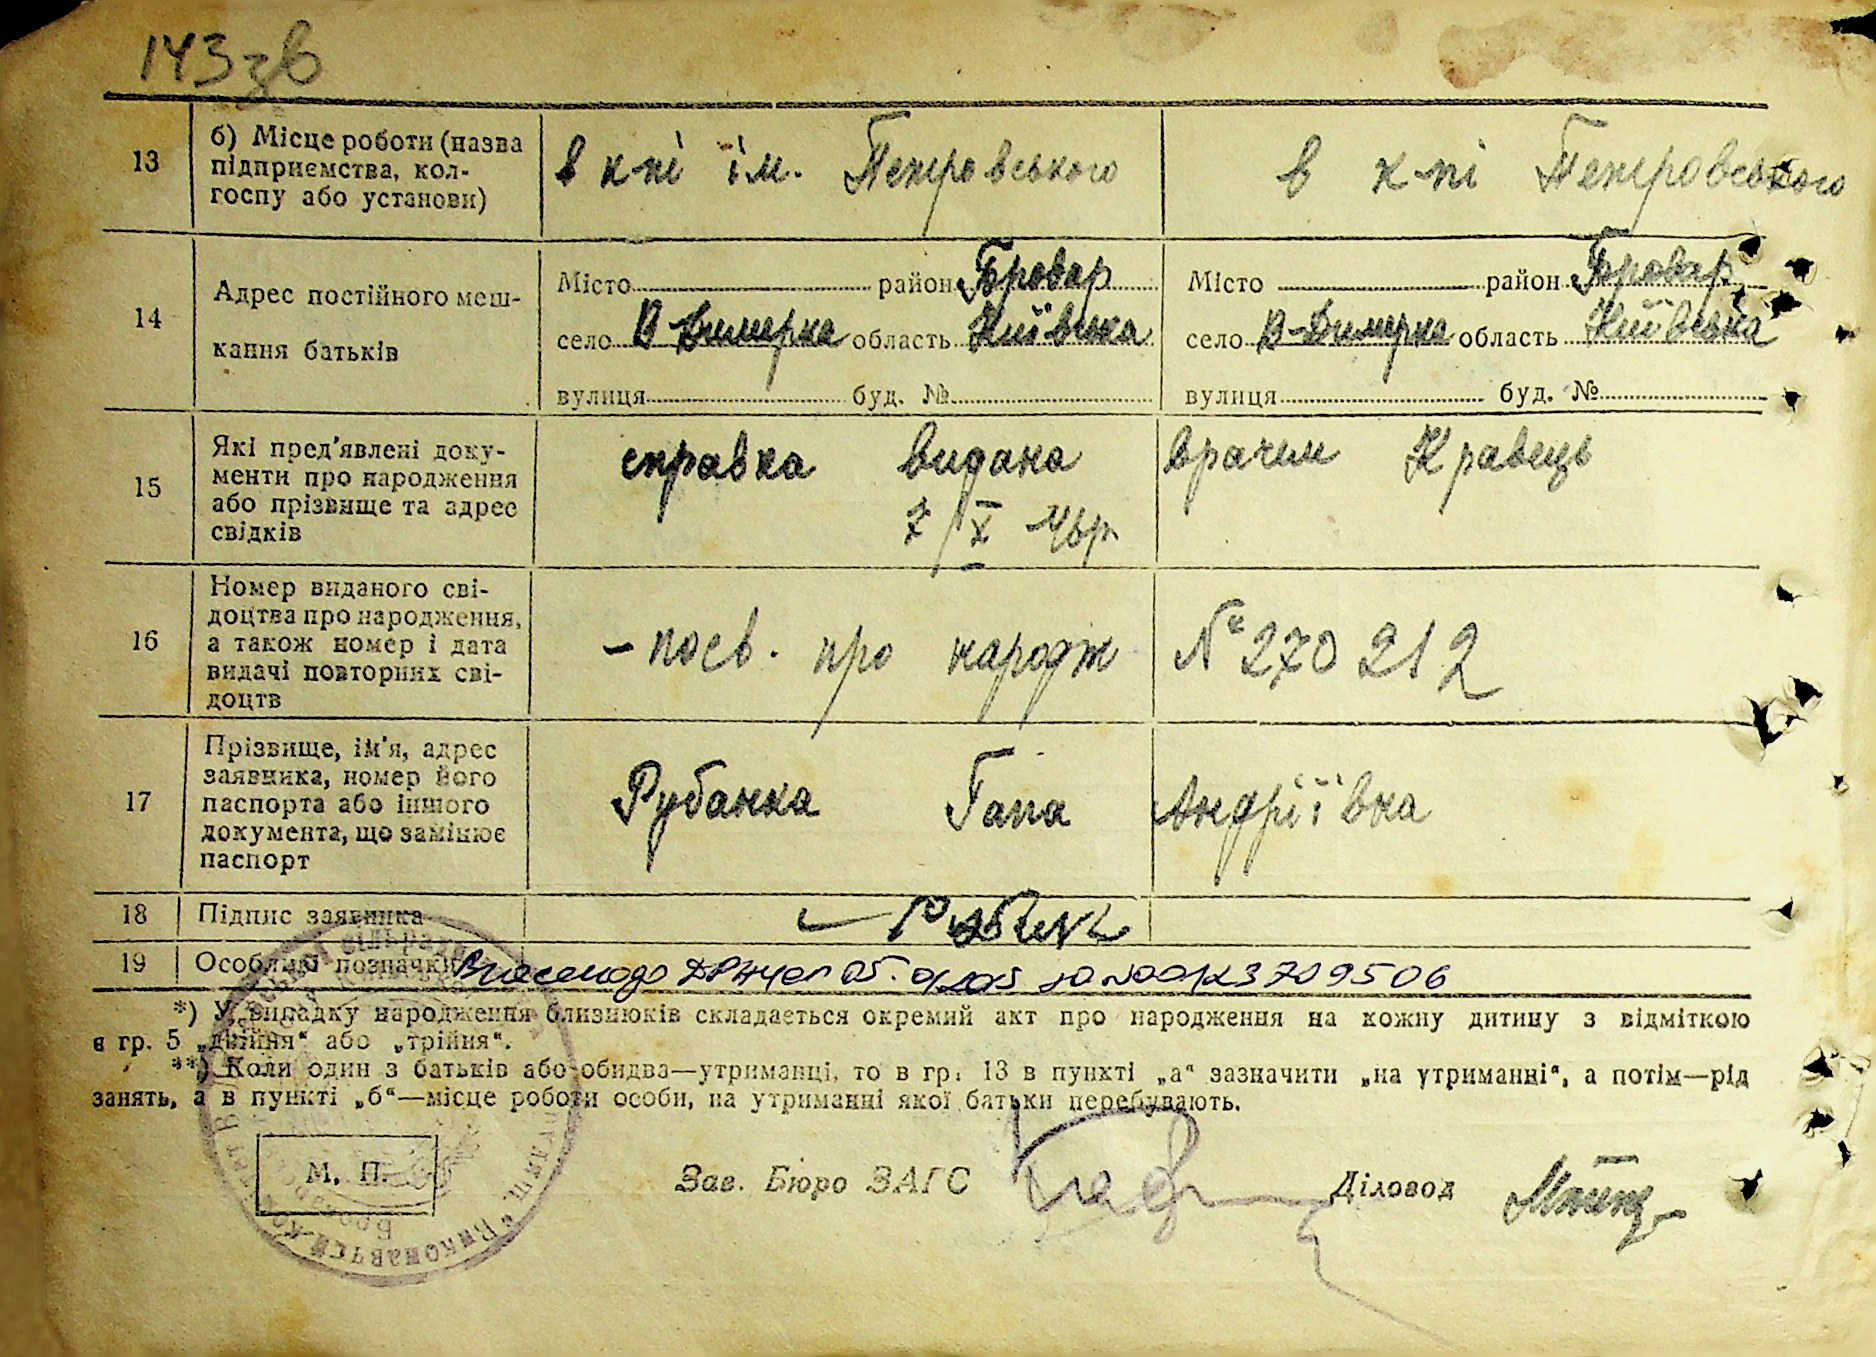 143зв
13 б) Місце роботи (назва
підприємства, кол-
госпу або установи) в к-пі ім. Петровського в к-пі Петровського
14 Адрес постійного меш-
кання батьків
Місто район Бровар Місто район Бровар
село В-Димерка область Київська село В-Димерка область Київська
вулиця буд. № вулиця буд. №
15 Які пред'явлені доку-
менти про народження
або прізвище та адрес
свідків
справка видана врачем Кравець
7/X
16 Номер виданого сві-
доцтва про народження,
а також номер і дата
видачі повторних сві-
доцтв
- посв. про народж № 270212
17 Прізвище, ім'я, адрес
заявника, номер його
паспорта або іншого
документа, що замінює
паспорт
Рубанка Гапа Андріївна
18 Підпис заявника
19 Особливі позначки 00123709506
*) У випадку народження близнюків складається окремий акт про народження на кожну дитину з відміткою
в гр. 5 „двійня“ або „трійня“.
**) Коли один з батьків або обидва—утриманці, то в гр. 13 в пункті „а“ зазначити „на утриманні“, а потім—рід
занять, а в пункті „б“—місце роботи особи, на утриманні якої батьки перебувають.
М. П. Зав. Бюро ЗАГС Діловод